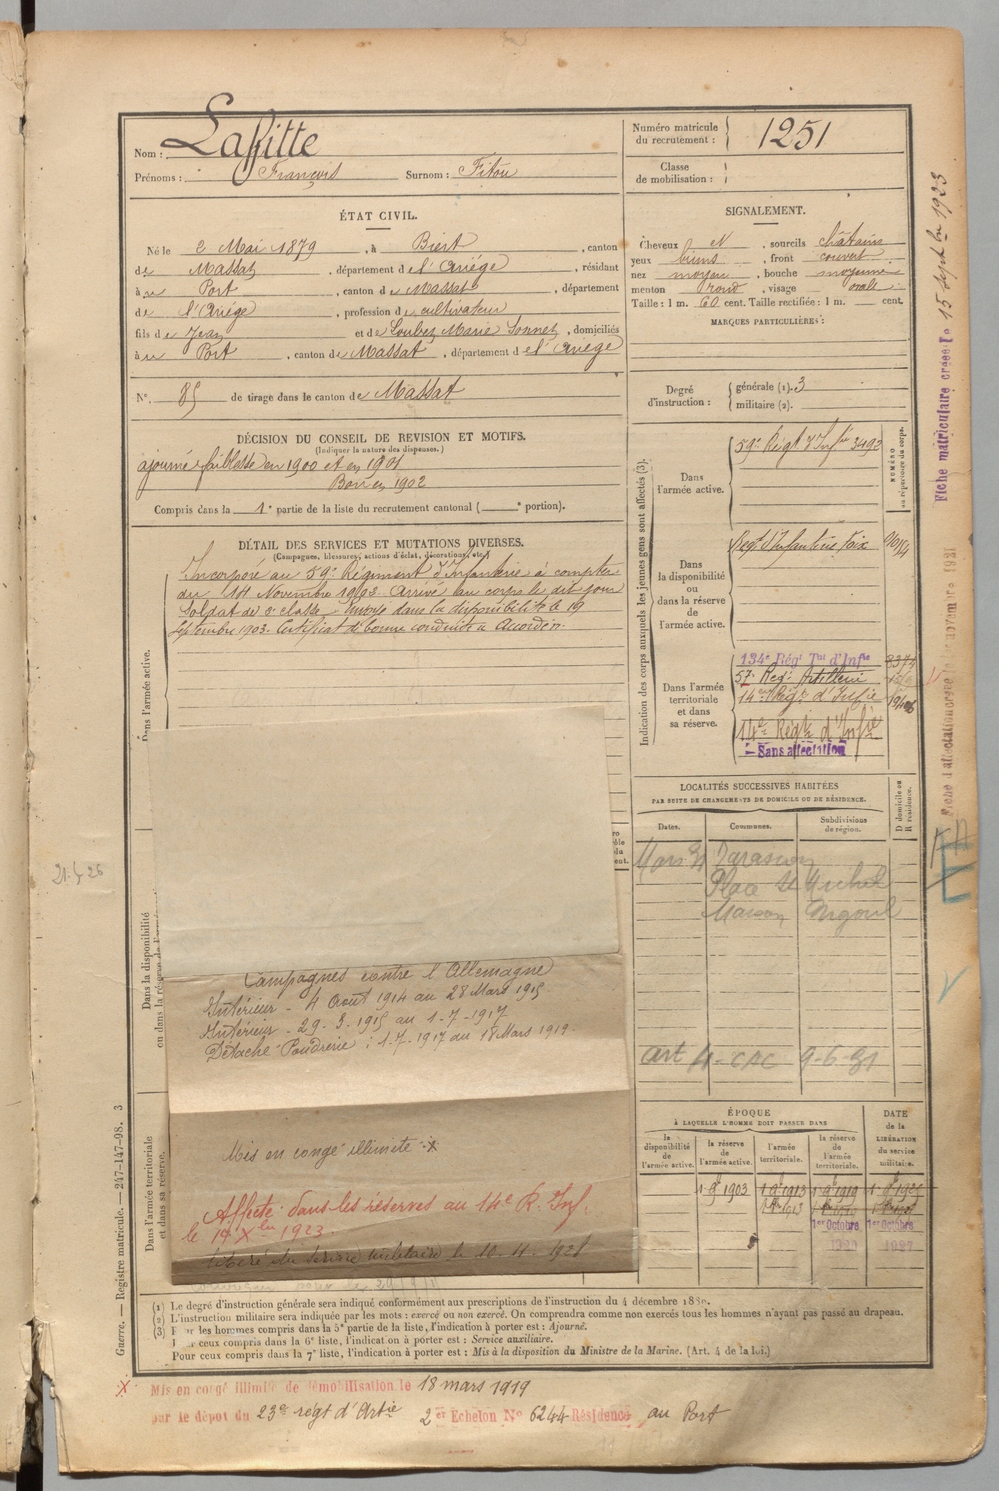 Nom : Laffitte
Prénoms : François Surnom : Fitou
Numéro matricule du recrutement : 1251
Classe de mobilisation :
ÉTAT CIVIL.
Né le 2 Mai 1879, à Biert, canton
de Massat, département de l'Ariége, résidant
à u Port, canton de Massat, département
de l'Ariége, profession de cultivateur
fils de Jean et de Loubez Marie Sonnet, domiciliés
à u Port, canton de Massat, département de l'Ariége
N°. 85 de tirage dans le canton de Massat
SIGNALEMENT.
Cheveux et, sourcils châtains
yeux bruns, front couvert
nez moyen, bouche moyenne
menton rond, visage ovale
Taille : 1 m. 60 cent. Taille rectifiée : 1 m. cent.
MARQUES PARTICULIÈRES :
Degré d'instruction : générale (1). 3
militaire (2).
DÉCISION DU CONSEIL DE REVISION ET MOTIFS.
(Indiquer la nature des dispenses.)
ajourné faiblesse en 1900 et en 1901
Bon en 1902
Compris dans la 1e partie de la liste du recrutement cantonal ( e portion).
DÉTAIL DES SERVICES ET MUTATIONS DIVERSES.
(Campagnes, blessures, actions d'éclat, décorations, etc.)
Incorporé au 59e Régiment d'Infanterie à compter
du 14 Novembre 1902. Arrivé au corps le dit jour
Soldat de 2e classe. Envoyé dans la disponibilité le 19
Septembre 1903. Certificat de bonne conduite "Accordé".
Dans l'armée active.
Dans la disponibilité
ou dans la réserve de l'armée
Dans l'armée territoriale
et dans sa réserve.
Campagnes contre l'Allemagne
Intérieur - 4 Août 1914 au 28 Mars 1915
Intérieur - 29-3-1915 au 1-7-1917
Détaché Poudrerie : 1-7-1917 au 18 Mars 1919.
Mis en congé illimité X
Affecté dans les réserves au 14e R. Inf.
le 17 Xbre 1923.
Libéré du Service militaire le 10-11-1928
Indication des corps auxquels les jeunes gens sont affectés (3).
NUMÉRO
au répertoire du corps.
Dans l'armée active.
59e Régt d'Infrie 3492
Dans la disponibilité ou dans la réserve de l'armée active.
Régt d'Infanterie Foix
Dans l'armée territoriale et dans sa réserve.
134e Régt Tal d'Infie
57e Reg. Artillerie
14e Régt d'Infie
14e Régt d'Infie
Sans affectation
LOCALITÉS SUCCESSIVES HABITÉES
PAR SUITE DE CHANGEMENTS DE DOMICILE OU DE RÉSIDENCE.
Dates. Communes. Subdivisions de région. D domicile ou R résidence.
Tarascon
Place St Michel
Maison
Art 4 - CAC 9-6-31
ÉPOQUE
À LAQUELLE L'HOMME DOIT PASSER DANS
DATE de la LIBÉRATION du service militaire.
la disponibilité de l'armée active.
la réserve de l'armée active.
l'armée territoriale.
la réserve de l'armée territoriale.
1 9e 1903 1 9e 1913 1 9e 1919
1er Octobre 1er Octobre
1927
(1) Le degré d'instruction générale sera indiqué conformément aux prescriptions de l'instruction du 4 décembre 1889.
(2) L'instruction militaire sera indiquée par les mots : exercé ou non exercé. On comprendra comme non exercés tous les hommes n'ayant pas passé au drapeau.
(3) Pour les hommes compris dans la 5e partie de la liste, l'indication à porter est : Ajourné.
Pour ceux compris dans la 6e liste, l'indication à porter est : Service auxiliaire.
Pour ceux compris dans la 7e liste, l'indication à porter est : Mis à la disposition du Ministre de la Marine. (Art. 4 de la loi.)
X Mis en congé illimité de démobilisation le 18 mars 1919
par le dépôt du 23e régt d'Artie 2er Echelon N° 6244 Résidence au Port
Guerre. — Registre matricule. — 247-147-98. 3
21-5-26
Fiche matriculaire créée le 15 septbre 1923